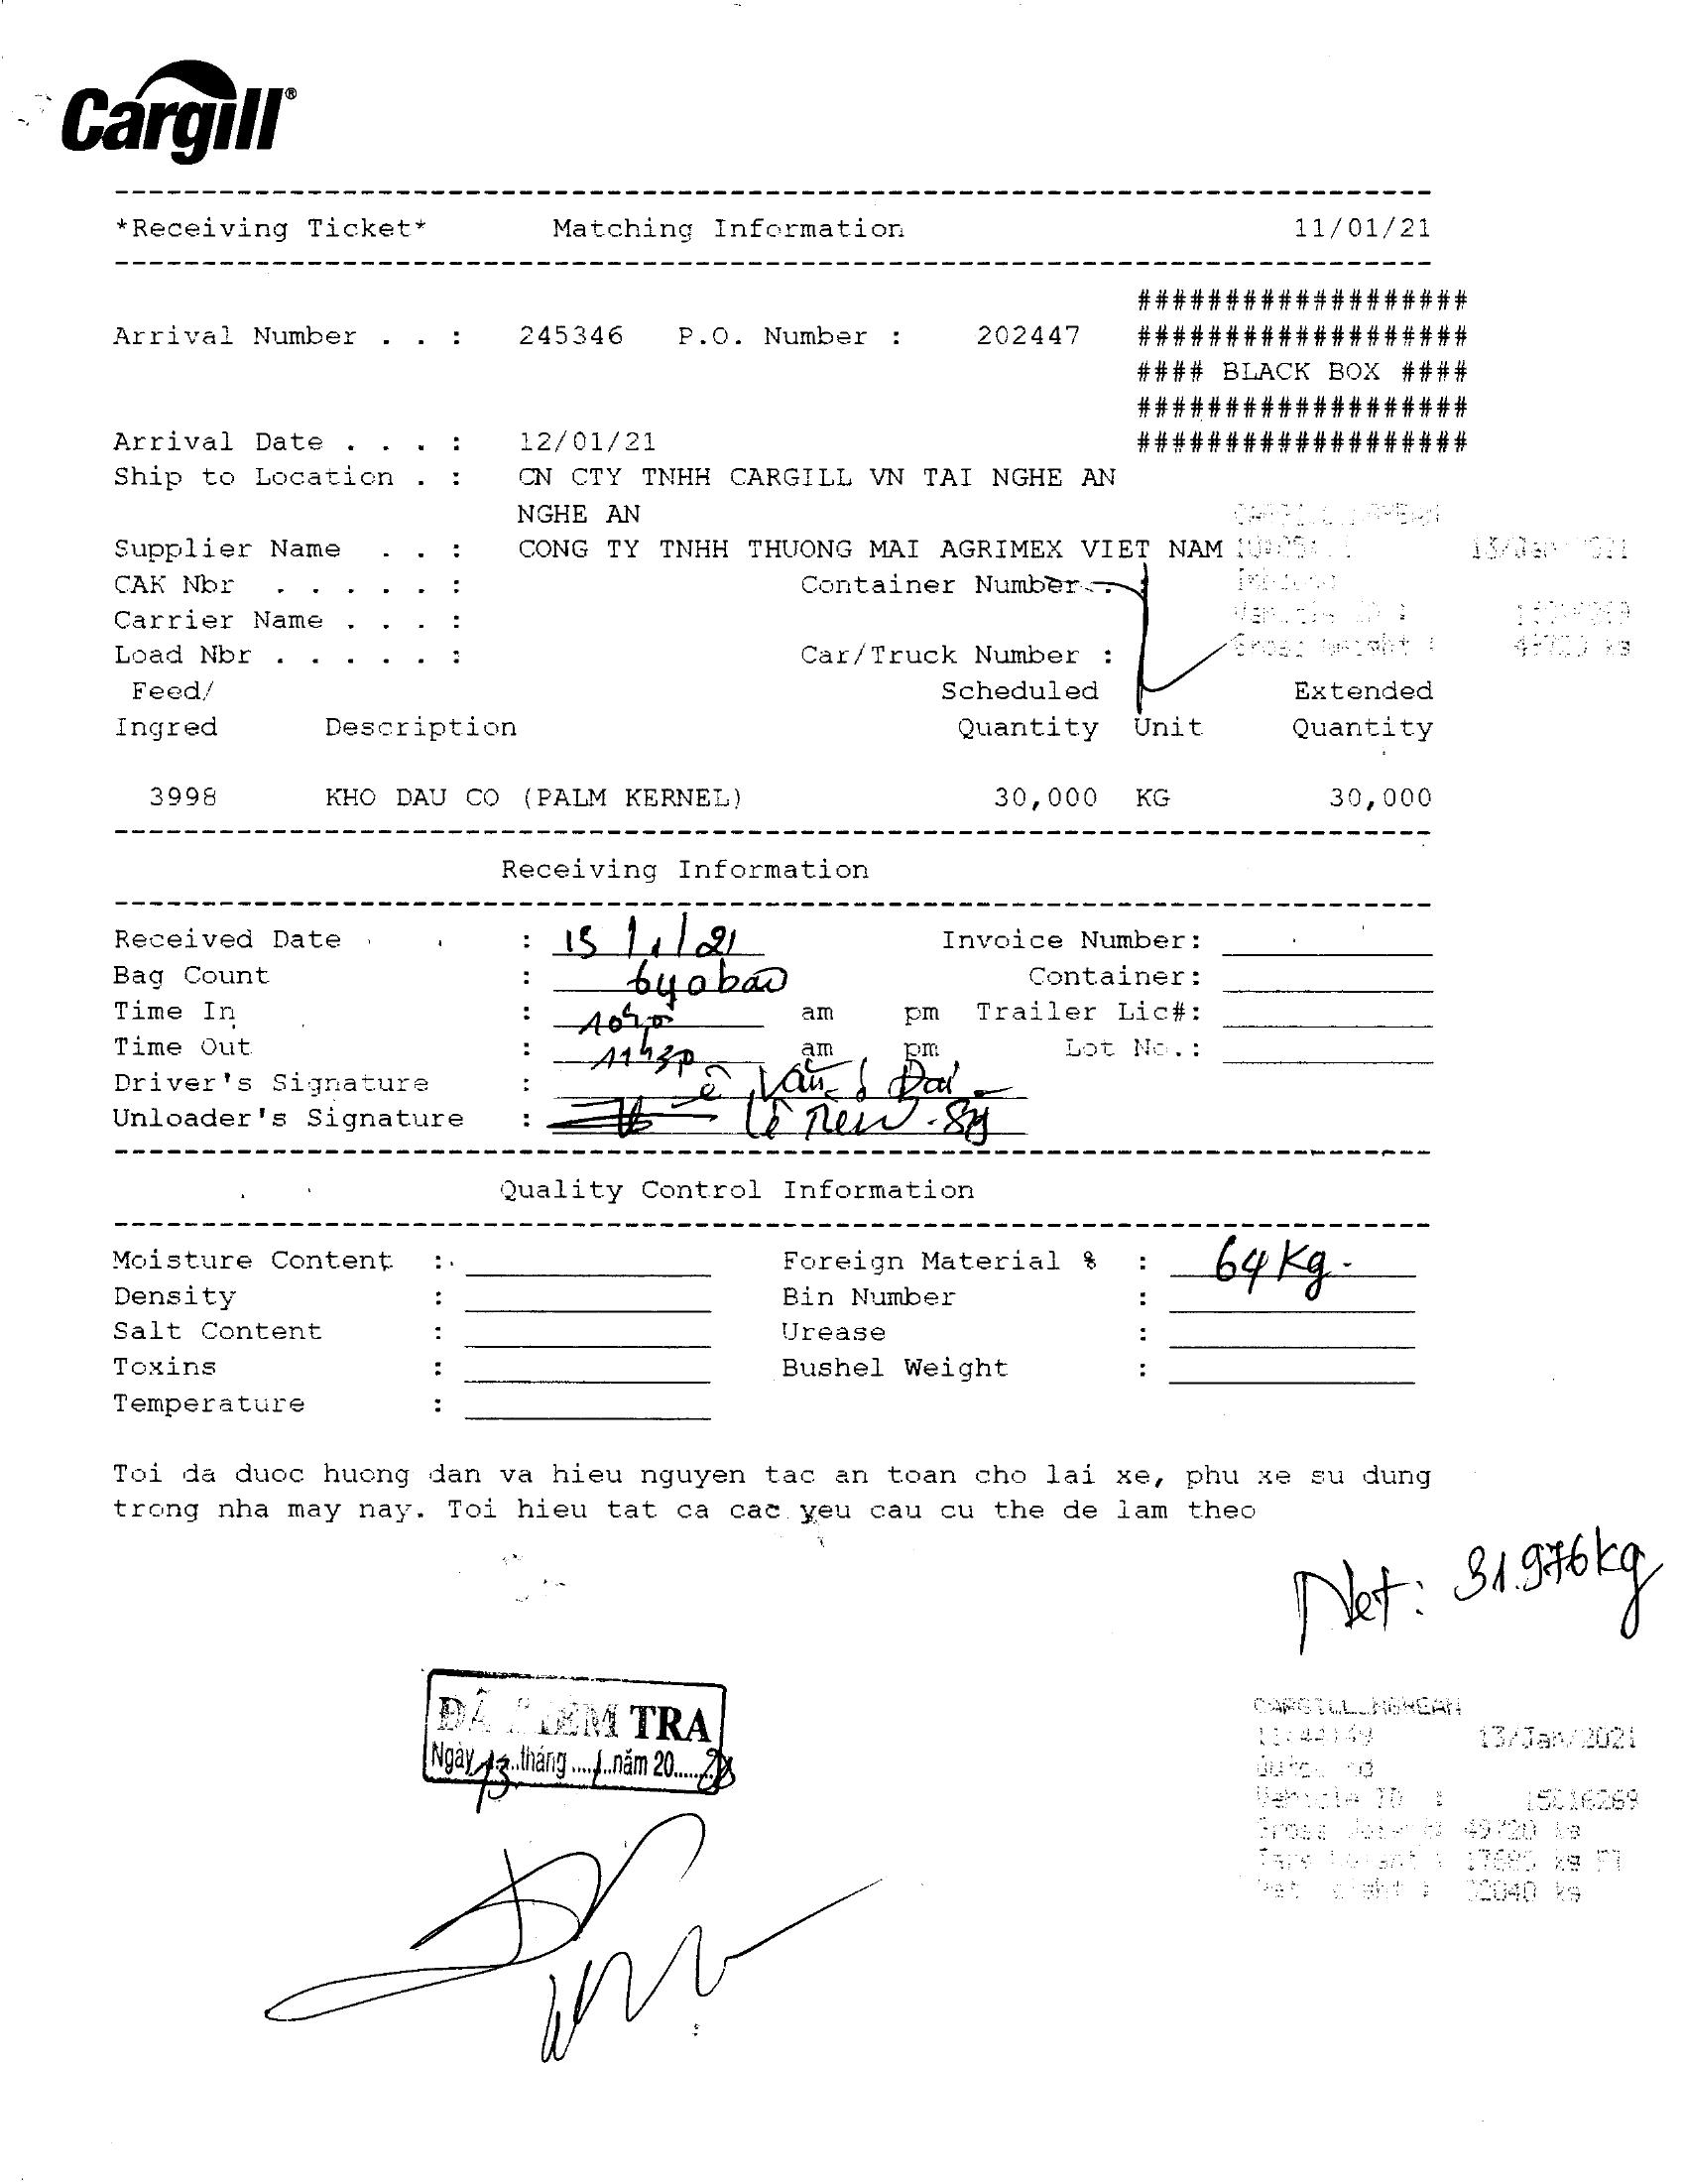 Cargill®
*Receiving Ticket* Matching Information 11/01/21
###################
Arrival Number . . : 245346 P.O. Number : 202447 ###################
#### BLACK BOX ####
###################
Arrival Date . . . : 12/01/21 ###################
Ship to Location . : CN CTY TNHH CARGILL VN TAI NGHE AN
NGHE AN
Supplier Name . . : CONG TY TNHH THUONG MAI AGRIMEX VIET NAM 13/Jan/2021
CAK Nbr . . . . . : Container Number . :
Carrier Name . . . : Vehicle ID :
Load Nbr . . . . . : Car/Truck Number : Gross Weight : 49720 kg
Feed/ Scheduled Extended
Ingred Description Quantity Unit Quantity
3998 KHO DAU CO (PALM KERNEL) 30,000 KG 30,000
Receiving Information
Received Date : 13/1/21 Invoice Number:
Bag Count : 640 bao Container:
Time In : am pm Trailer Lic#:
Time Out : 11h30 am pm Lot No.:
Driver's Signature : Lê Văn Đại
Unloader's Signature : Lê
Quality Control Information
Moisture Content : Foreign Material % : 64 Kg.
Density : Bin Number :
Salt Content : Urease :
Toxins : Bushel Weight :
Temperature :
Toi da duoc huong dan va hieu nguyen tac an toan cho lai xe, phu xe su dung
trong nha may nay. Toi hieu tat ca cac yeu cau cu the de lam theo
Net: 31.976 kg
ĐÃ KIỂM TRA
Ngày 13 tháng 1 năm 20
CARGILL_NGHEAN
11:44:49 13/Jan/2021
Vehicle ID : 15C16269
Gross Weight : 49720 kg
Tare Weight : 17680 kg PT
Net Weight : 32040 kg